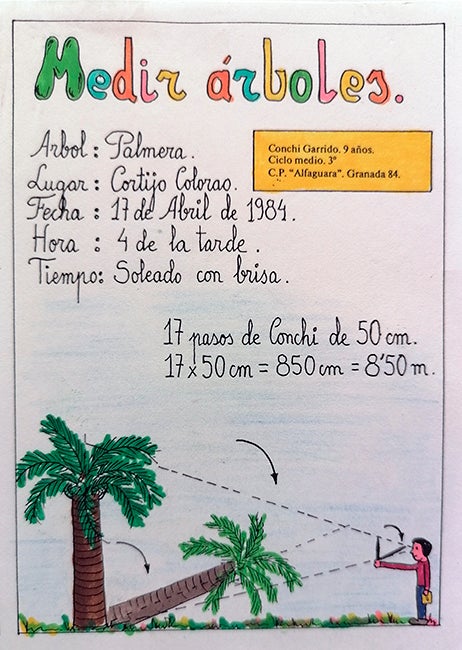 Medir árboles.
Arbol: Palmera.
Conchi Garrido. 9 años.
Ciclo medio. 3º
C.P. "Alfaguara". Granada 84.
Lugar: Cortijo Colorao.
Fecha: 17 de Abril de 1984.
Hora: 4 de la tarde.
Tiempo: Soleado con brisa.
17 pasos de Conchi de 50 cm.
17 x 50 cm = 850 cm = 8'50 m.